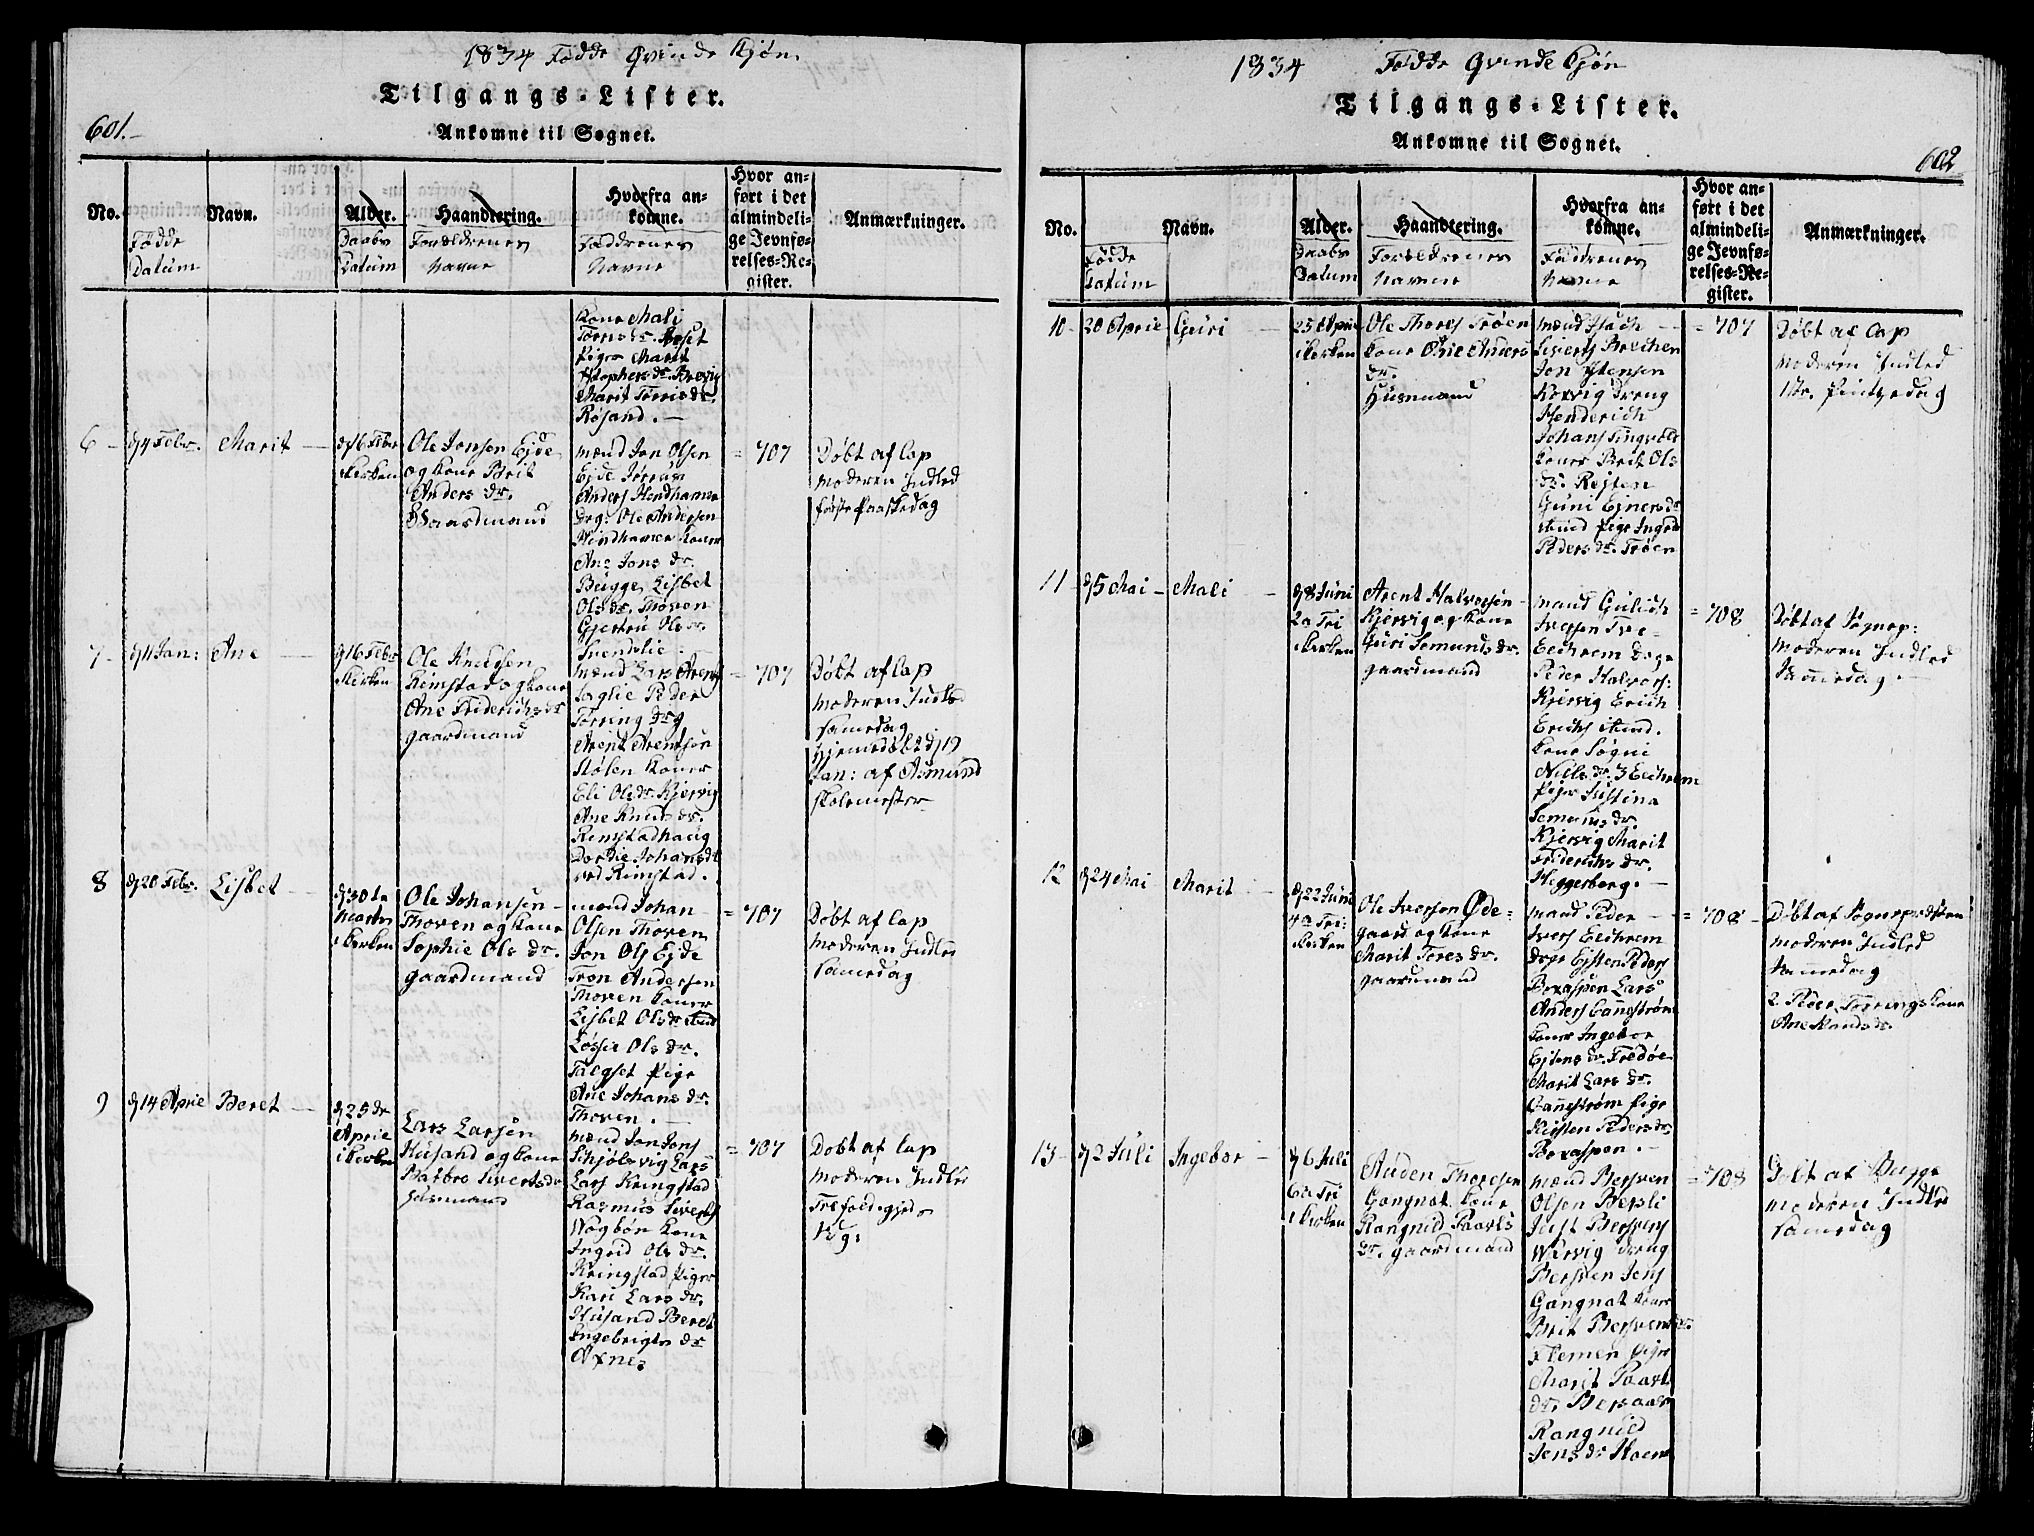 1834 Fødde Qvinde Kjøn
Tilgangs-Lister.
601.
Ankomne til Sognet.
No.
Fødde Datum
Navn.
Alder.
Daabs Datum
Haandtering.
Foreldrenes Navne
Hvorfra ankomne.
Faddrenes Navne
Hvor anført i det almindelige Jevnførelses-Register.
Anmærkninger.
Kone Mali
Pige Marit
Marit Torresdr.
Røsand.
6 d. 4 Febr. Marit
d. 16 Febr.
i Kirken
Ole Jonsen Ejde
og Kone Brit
Anders dr.
Gaardmand
Mænd Jon Olsen
Ejde
Anders Hendhamer
Drg: Ole Andersen
Hendhamer Koner
Ane Jons dr.
Bugge Lisbet
Ols dr. Thoven
Gjertru Ols dr.
= 707
Døbt af Cap
Moderen Indled
første Paaskedag
7 d. 4 Jan: Ane
d. 16 Febr.
i Kirken
Ole Knudsen
Rimstad og Kone
Ane Friderichs dr.
gaardmand
Mænd Lars Arents
Peder
Tørring drg
Arent Arentsen
Stølen Koner
Eli Ols dr. Kjervig
Ane Knuds dr.
Rimstadhaug
Dordie Johansdr
ved Rimstad.
= 707
Døbt af Cap
Moderen Indled
samedag
Hjemedøbt d. 19
Jan: af Asmund
Skolemester
8 d. 20 Febr. Lisbet
d. 30te
Marts
i Kirken
Ole Johansen
Thoven og Kone
Sophie Ols dr.
gaardmand
Mænd Johan
Olsen Thoven
Jon Ols Ejde
Tron Andersen
Thoven Koner
Lisbet Ols dr.
Ols dr.
Talgset Pige
Ane Johans dr.
Thoven.
= 707
Døbt af Cap
Moderen Indled
samedag
9 d. 14 April Beret
d. 25de
April
i Kirken
Lars Larsen
Husand og Kone
Sivertsdr
Husmand
Mænd Jon Jons
Schjølsvig Lars
Lars Kringstad
Rasmus Siverts
Wogbøn Kone
Ingrid Ols dr.
Kringstad Piger
Kari Lars dr.
Husand Beret
Ingebrigts dr
Axnes
= 707
Døbt af Cap
Moderen Indled
1834 Fødde Qvinde Kjøn
Tilgangs-Lister.
Ankomne til Sognet.
602
No.
Fødde Datum
Navn.
Alder.
Daabs Datum
Haandtering.
Foreldrenes Navne
Hvorfra ankomne.
Faddrenes Navne
Hvor anført i det almindelige Jevnførelses-Register.
Anmærkninger.
10 20 April Guri
25 April
i Kirken
Ole Thores Trøen
Kone Anders
dr.
Husmand
Mænd
Siverts
Jon Ystensen
Korvig Dreng
Henderich
Johans Tingvold
Koner Brit Ols
dr. Rejten
Guri Ejners dr
Sund Pige Ingeb
Peders dr. Trøen
= 707
Døbt af Cap
Moderen Indled
1ste Pintsedag
11 d. 5 Mai Mali
d. 8 Juni
2a Tri
i Kirken
Arent Halvorsen
Kjervig og Kone
Guri Semunds dr.
gaardmand
Mænd Gulich
Iversen Tre
Eeihrem Drge
Peder Halvors:
Kjervig Erich
Erichs Sund.
Kone Søgni
Niels dr. Eeihrem
Piger Kistina
Semunds dr.
Kjervig Marit
Friderichs dr.
Heggerberg.
= 708
Døbt af Sognep:
Moderen Indled
Samedag.
12 d. 24 Mai Marit
d. 22 Juni
4a Tri:
i Kirken
Ole Iversen Øde=
gaard og Kone
Marit Tores dr.
gaardmand
Mænd Peder
Ivers Eeihrem
Drge Ejsten Peders
Boxaspen Lars
Anders Cannestrøm
Koner Ingebor
Ejstens dr. Fredøe
Marit Lars dr.
Cannestrøm Pige
Kirsten Peders dr
Boxaspen.
= 708
Døbt af Sognepresten
Moderen Indled
Samedag
2 Peder Tørrings Kone
Ane
13 d. 2 Juli Ingebor
d. 6 Juli
6a Tri
i Kirken
Auden Thoresen
Gangnat Kone
Rangnid Paarls
dr. gaardmand
Mænd Bersven
Olsen Bersli
Just Bersvens
Wirvig Dreng
Bersven Jens
Gangnat Koner
Brit Bersvens dr.
Flemen Pige
Marit Paarls
dr. Bersaas
Rangnild
Jens dr Hoem
= 708
Døbt af Bugge
Moderen Indled
samedag